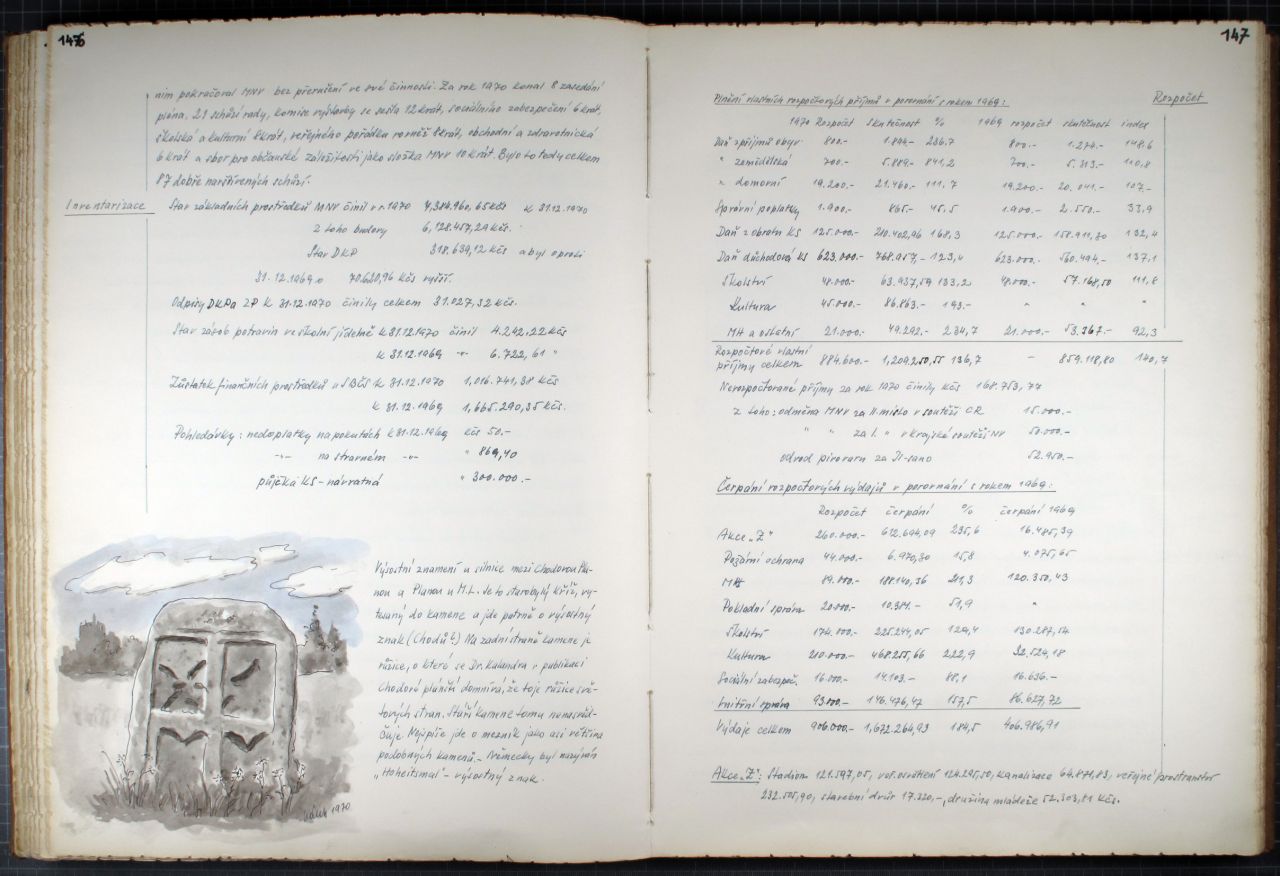 1476
ním pokračoval MNV bez přerušení ve své činnosti. Za rok 1970 konal 8 zasedání
pléna, 21 schůzí rady, komise výstavby se sešla 12 krát, sociálního zabezpečení 6 krát,
školská a kulturní 8krát, veřejného pořádku rovněž 8krát, obchodní a zdravotnická
6 krát a sbor pro občanské záležitosti jako složka MNV 10 krát. Bylo to tedy celkem
87 dobře navštívených schůzí.
Inventarizace
Stav základních prostředků MNV činil v r. 1970 7,384.960,65 Kčs k 31.12.1970
z toho budovy 6,128.457,29 Kčs.
Stav DKP 318.639,12 Kčs a byl oproti
31.12.1969 o 70.680,96 Kčs vyšší.
Odpisy DKP a ZP k 31.12.1970 činily celkem 31.027,32 Kčs.
Stav zásob potravin ve školní jídelně k 31.12.1970 činil 4.242,22 Kčs
k 31.12.1969 -"- 6.722,61 "
Zůstatek finančních prostředků u SBČS k 31.12.1970 1,016.741,38 Kčs
k 31.12.1969 1,665.290,35 Kčs.
Pohledávky: nedoplatky na pokutách k 31.12.1969 Kčs 50.-
-"- na stravném -"- " 869,40
půjčka KS - návratná " 300.000.-
Výsostní znamení u silnice mezi Chodovou Pla-
nou a Planou u M.L. Je to starobylý kříž, vy-
tesaný do kamene a jde patrně o výsostný
znak (Chodů?) Na zadní straně kamene je
růžice, o které se Dr. Kalandra v publikaci
Chodové plánští domnívá, že to je růžice svě-
tových stran. Stáří kamene tomu nenasvěd-
čuje. Nejspíše jde o mezník jako asi většina
podobných kamenů. - Německy byl nazýván
"Hoheitsmal" - výsostný znak.
1970
147
Rozpočet
Plnění vlastních rozpočtových příjmů v porovnání s rokem 1969:
1970 Rozpočet skutečnost % 1969 rozpočet skutečnost index
Daň z příjmů obyv. 800.- 1.894.- 236.7 800.- 1.274.- 148.6
" zemědělská 700.- 5.889.- 841,2 700.- 5.313.- 110,8
" domovní 19.200.- 21.460.- 111,7 19.200.- 20.041.- 107,-
Správní poplatky 1.900.- 865.- 45,5 1.900.- 2.550.- 33,9
Daň z obratu KS 125.000.- 210.402,96 168,3 125.000.- 158.911,80 132,4
Daň důchodová KS 623.000.- 768.957,- 123,4 623.000.- 560.494.- 137,1
Školství 48.000.- 63.937,59 133,2 48.000.- 57.168,50 111,8
Kultura 45.000.- 86.863.- 193.- " " "
MH a ostatní 21.000.- 49.292.- 234,7 21.000.- 53.367.- 92,3
Rozpočtové vlastní
příjmy celkem 884.600.- 1,209.250,55 136,7 - 859.118,80 140,7
Nerozpočtované příjmy za rok 1970 činily Kčs 168.753,77
z toho: odměna MNV za II. místo v soutěži ČR 15.000.-
" " za I. " v krajské soutěži NV 50.000.-
odvod pivovaru za Il-sano 52.950.-
Čerpání rozpočtových výdajů v porovnání s rokem 1969:
Rozpočet čerpání % čerpání 1969
Akce "Z" 260.000.- 612.694,09 235,6 16.485,39
Požární ochrana 44.000.- 6.970,30 15,8 4.075,65
MH 89.000.- 188.140,36 211,3 120.350,43
Pokladní správa 20.000.- 10.384.- 51,9 "
Školství 174.000.- 225.244,05 129,4 130.287,54
Kultura 210.000.- 468.255,66 222,9 32.524,18
Sociální zabezpeč. 16.000.- 14.103.- 88,1 16.636.-
Vnitřní správa 93.000.- 146.476,47 157,5 86.627,72
Výdaje celkem 906.000.- 1,672.264,93 184,5 406.986,91
Akce "Z": Stadion 121.597,05, veř. osvětlení 124.295,50, kanalizace 64.871,83, veřejné prostranství
232.505,90, stavební dvůr 17.320,-, družina mládeže 52.303,81 Kčs.